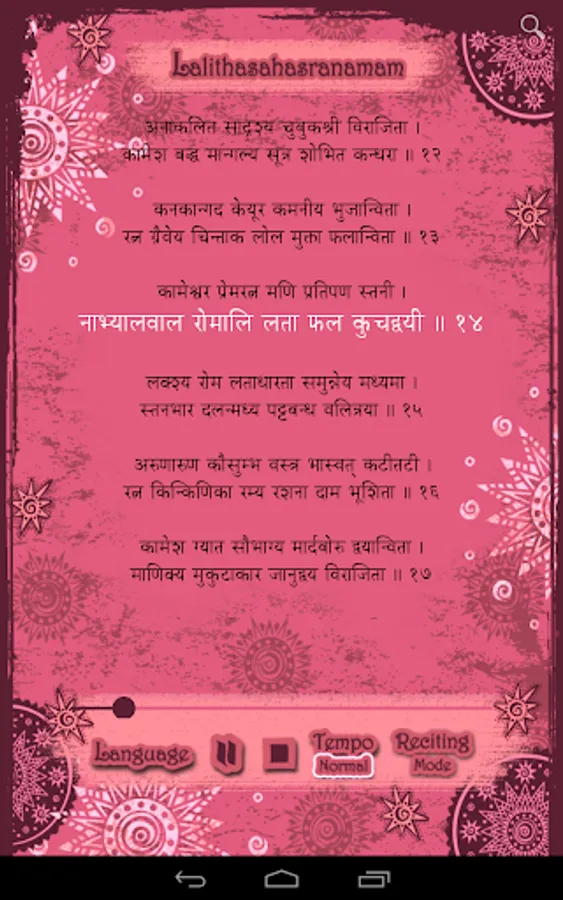 Lalithasahasranamam
अनाकलित सादृश्य चुबुकश्री विराजिता ।
कामेश बद्ध मान्गल्य सूत्र शोभित कन्धरा ॥ १२
कनकान्गद केयूर कमनीय भुजान्विता ।
रत्न ग्रैवेय चिन्ताक लोल मुक्ता फलान्विता ॥ १३
कामेश्वर प्रेमरत्न मणि प्रतिपण स्तनी ।
नाभ्यालवाल रोमालि लता फल कुचद्वयी ॥ १४
लक्श्य रोम लताधारता समुन्नेय मध्यमा ।
स्तनभार दलन्मध्य पट्टबन्ध वलित्रया ॥ १५
अरुणारुण कौसुम्भ वस्त्र भास्वत् कटीतटी ।
रत्न किन्किणिका रम्य रशना दाम भूशिता ॥ १६
कामेश ग्यात सौभाग्य मार्दवोरु द्वयान्विता ।
माणिक्य मुकुटाकार जानुद्वय विराजिता ॥ १७
Language
Tempo
Normal
Reciting
Mode